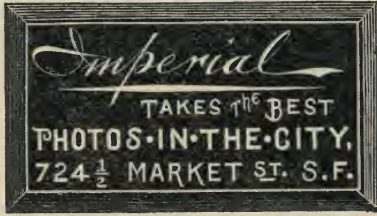 Imperial
TAKES THE BEST
PHOTOS·IN·THE·CITY,
724½ MARKET ST. S.F.